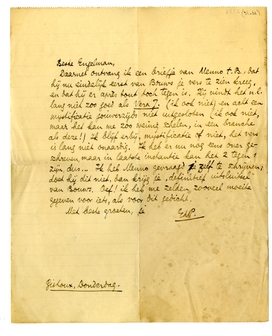 Beste Engelman,
Daarnet ontvang ik een briefje van Menno t.B. dat
hij nu eindelijk eerst van Bouws je vers te zien kreeg,
en dat hij er anti tegen is. Hij vindt het n.l.
lang niet zoo goed als Vera J. (ik ook niet) en acht een
mystificatie jouwerzijds niet uitgesloten (ik ook niet,
maar het kan me zoo weinig schelen, in een branche
als deze!) Ik blijf erbij, mystificatie of niet, het vers
is lang niet onaardig. Ik heb er nu nog eens over ge-
schreven maar in laatste instantie kan het 2 tegen 1
zijn dus... Ik heb Menno gevraagd je zelf te schrijven;
doet hij dit niet, dan krijg je "definitief uitsluitsel"
van Bouws. Oef! ik heb me zelden zooveel moeite
gegeven voor iets, als voor dit gedicht.
Met beste groeten, je
EdP.
Gistoux, Donderdag.